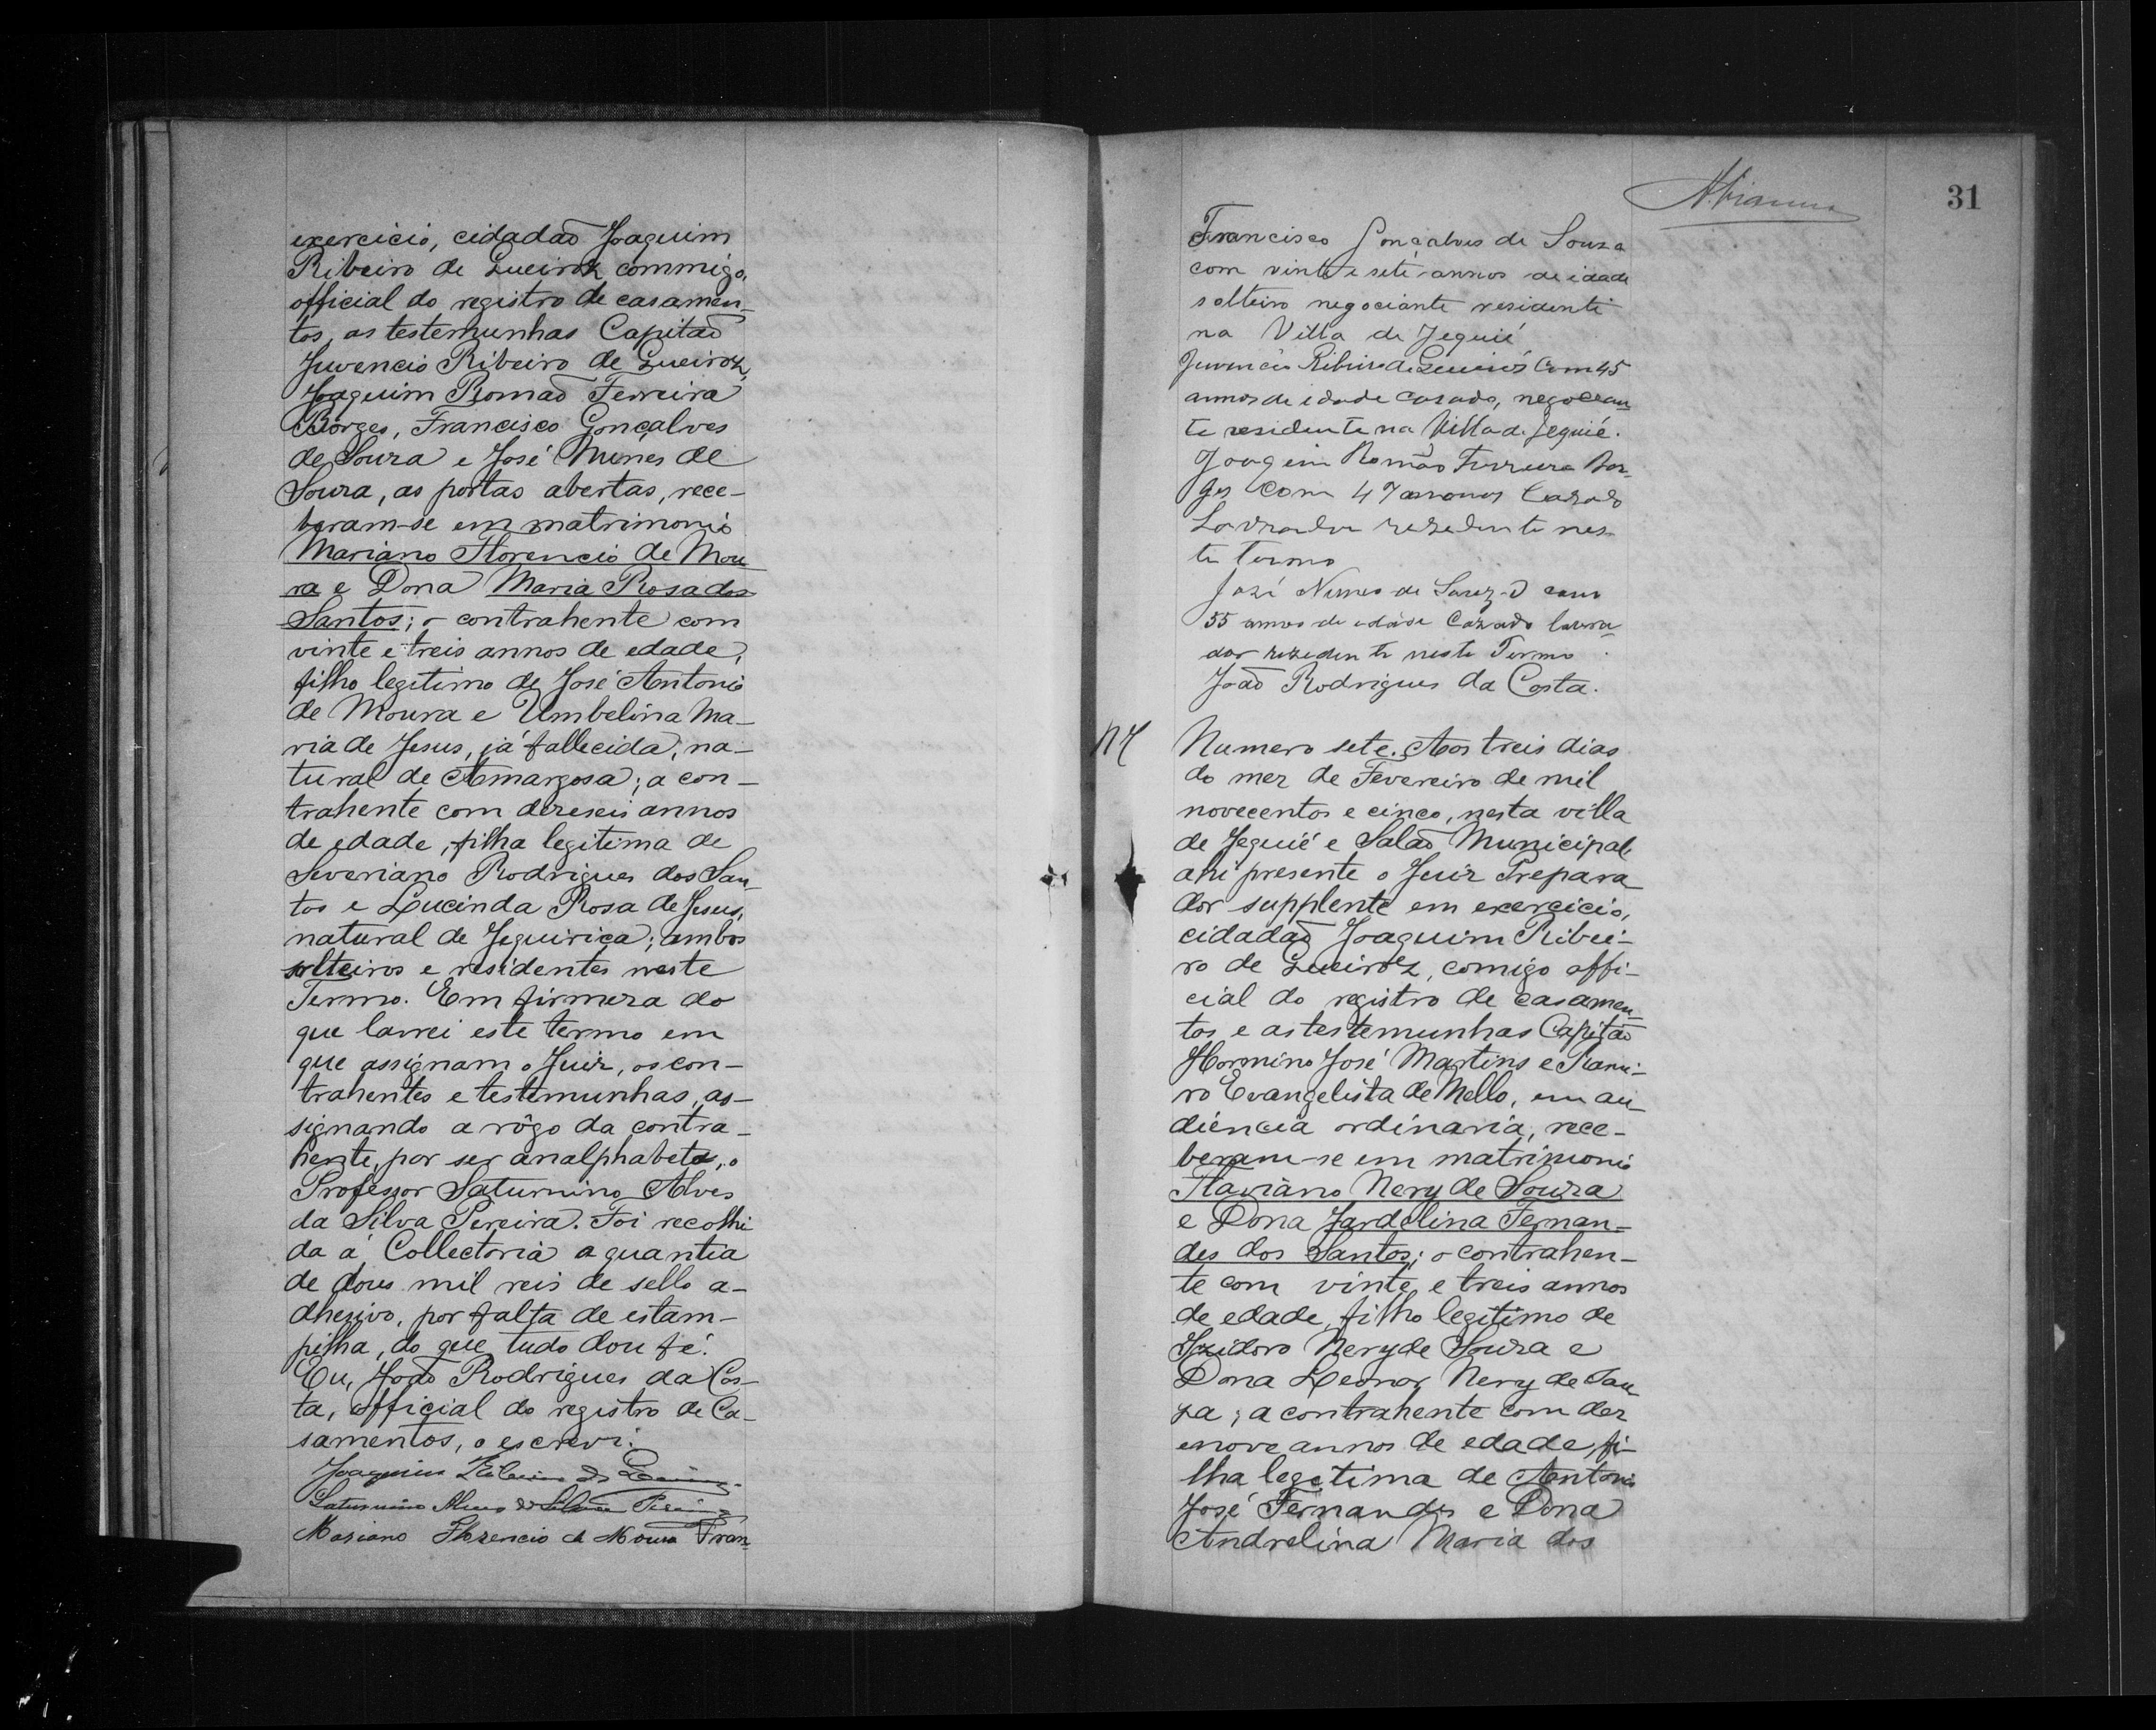 exercicio, cidadão Joaquim
Ribeiro de Queiroz commigo,
official do registro de casamen-
tos, as testemunhas Capitão
Juvencio Ribeiro de Queiroz,
Joaquim Romão Ferreira
Borges, Francisco Gonçalves
de Souza e José Nunes de
Souza, as portas abertas, rece-
beram-se em matrimonio
Mariano Florencio de Mou
ra e Dona Maria Rosa dos
Santos; o contrahente com
vinte e treis annos de edade,
filho legitimo de José Antonio
de Moura e Umbelina Ma-
ria de Jesus, já fallecida, na-
tural de Amargosa; a con-
trahente com dezeseis annos
de edade, filha legitima de
Severiano Rodrigues dos San-
tos e Lucinda Rosa de Jesus,
natural de Jequiriça; ambos
solteiros e residentes neste
Termo. Em firmeza do
que lavrei este termo em
que assignam o Juiz, os con-
trahentes e testemunhas, as-
signando a rôgo da contra-
hente, por ser analphabeta, o
Professor Saturnino Alves
da Silva Pereira. Foi recolhi
da á Collectoria a quantia
de dous mil reis de sello a-
dhesivo, por falta de estam-
pilha, do que tudo dou fé.
Eu, João Rodrigues da Cos-
ta, official do registro de Ca-
samentos, o escrevi.
Joaquim Ribeiro de Queiroz
Saturnino Alves da Silva Pereira
Mariano Florencio de Moura Fran-
31
Francisco Gonçalves de Souza
com vinte e sete annos de idade
solteiro negociante residente
na Villa de Jequié
Juvencio Ribeiro de Queiros com 45
annos de idade casado, negocean
te residente na Villa de Jequié.
Joaqim Romão Ferreira Bor
ges com 47 annos Cazado
Lavrador rezedente nes
te Termo
José Nunes de Souza com
55 annos de idade Cazado lavra-
dor rezedente neste Termo.
João Rodrigues da Costa.
N7 Numero sete. Aos treis dias
do mez de Fevereiro de mil
novecentos e cinco, nesta villa
de Jequié e Salão Municipal,
ahi presente o Juiz Prepara-
dor supplente em exercicio,
cidadão Joaquim Ribei-
ro de Queiroz, comigo offi-
cial do registro de casamen-
tos e as testemunhas Capitão
Hormino José Martins e Rami-
ro Evangelista de Mello, em au-
diencia ordinaria, rece-
beram-se em matrimonio
Flaviano Nery de Souza
e Dona Jardelina Fernan-
des dos Santos; o contrahen-
te com vinte e treis annos
de edade, filho legitimo de
Izidoro Nery de Souza e
Dona Leonor Nery de Sou
za; a contrahente com dez
enove annos de edade, fi-
lha legitima de Antonio
José Fernandes e Dona
Andrelina Maria dos